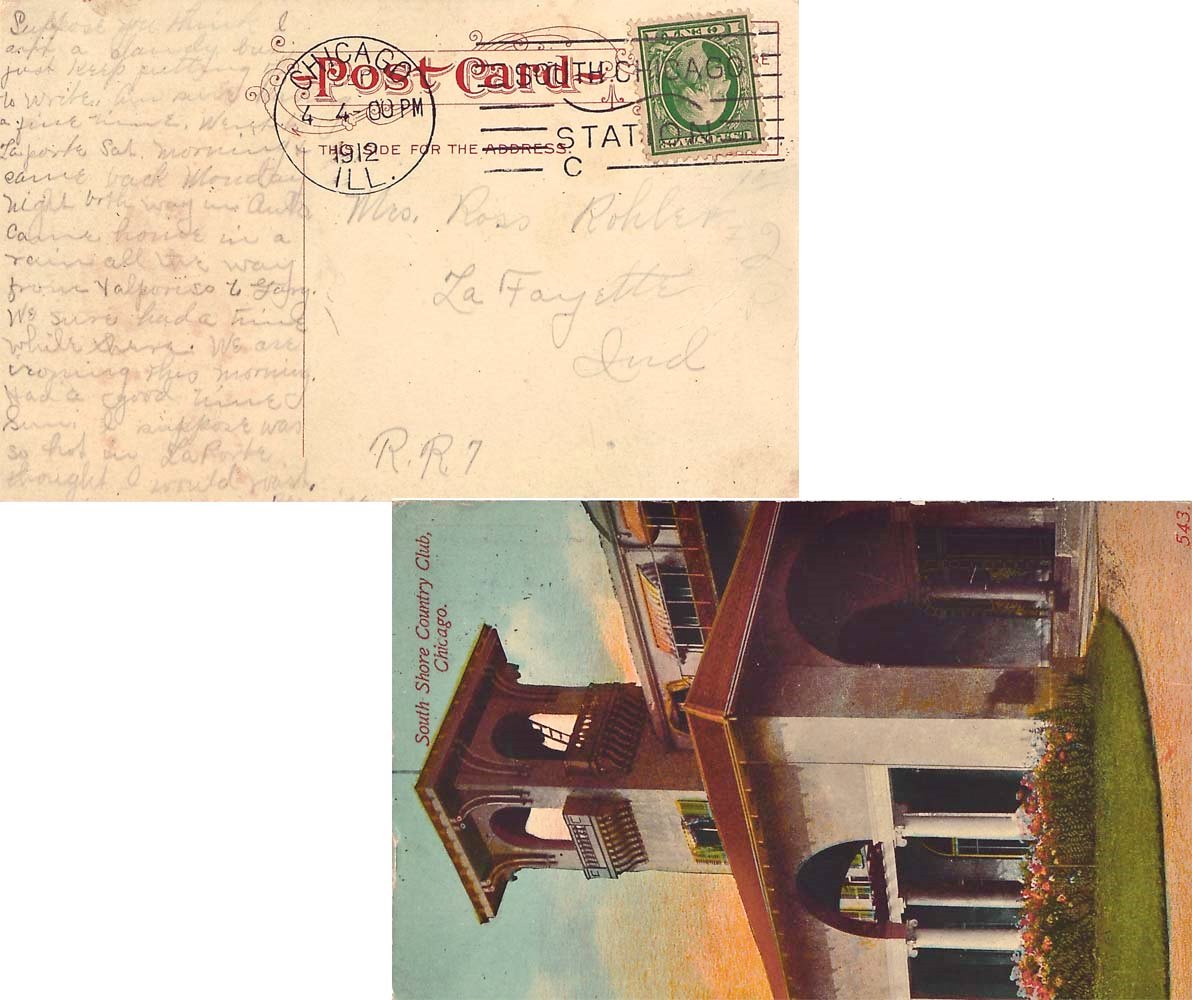 Suppose you think I
ain't a dandy but
just keep putting
to write. Am sure
a fine time. Went
Laporte Sat. morning &
came back Monday
Night both way in Auto
Came home in a
rain all the way
from Valporiso to Gary.
We sure had a time
while there. We are
ironing this mornin.
Had a good time
Sun. I suppose was
so hot in LaPorte
thought I would roast.
Post Card
THIS SIDE FOR THE ADDRESS.
CHICAGO
4 4-00 PM
1912
ILL.
SOUTH CHICAGO
STATION
C
Mrs. Ross Rohler
La Fayette
Ind
R.R. 7
South Shore Country Club,
Chicago.
543.